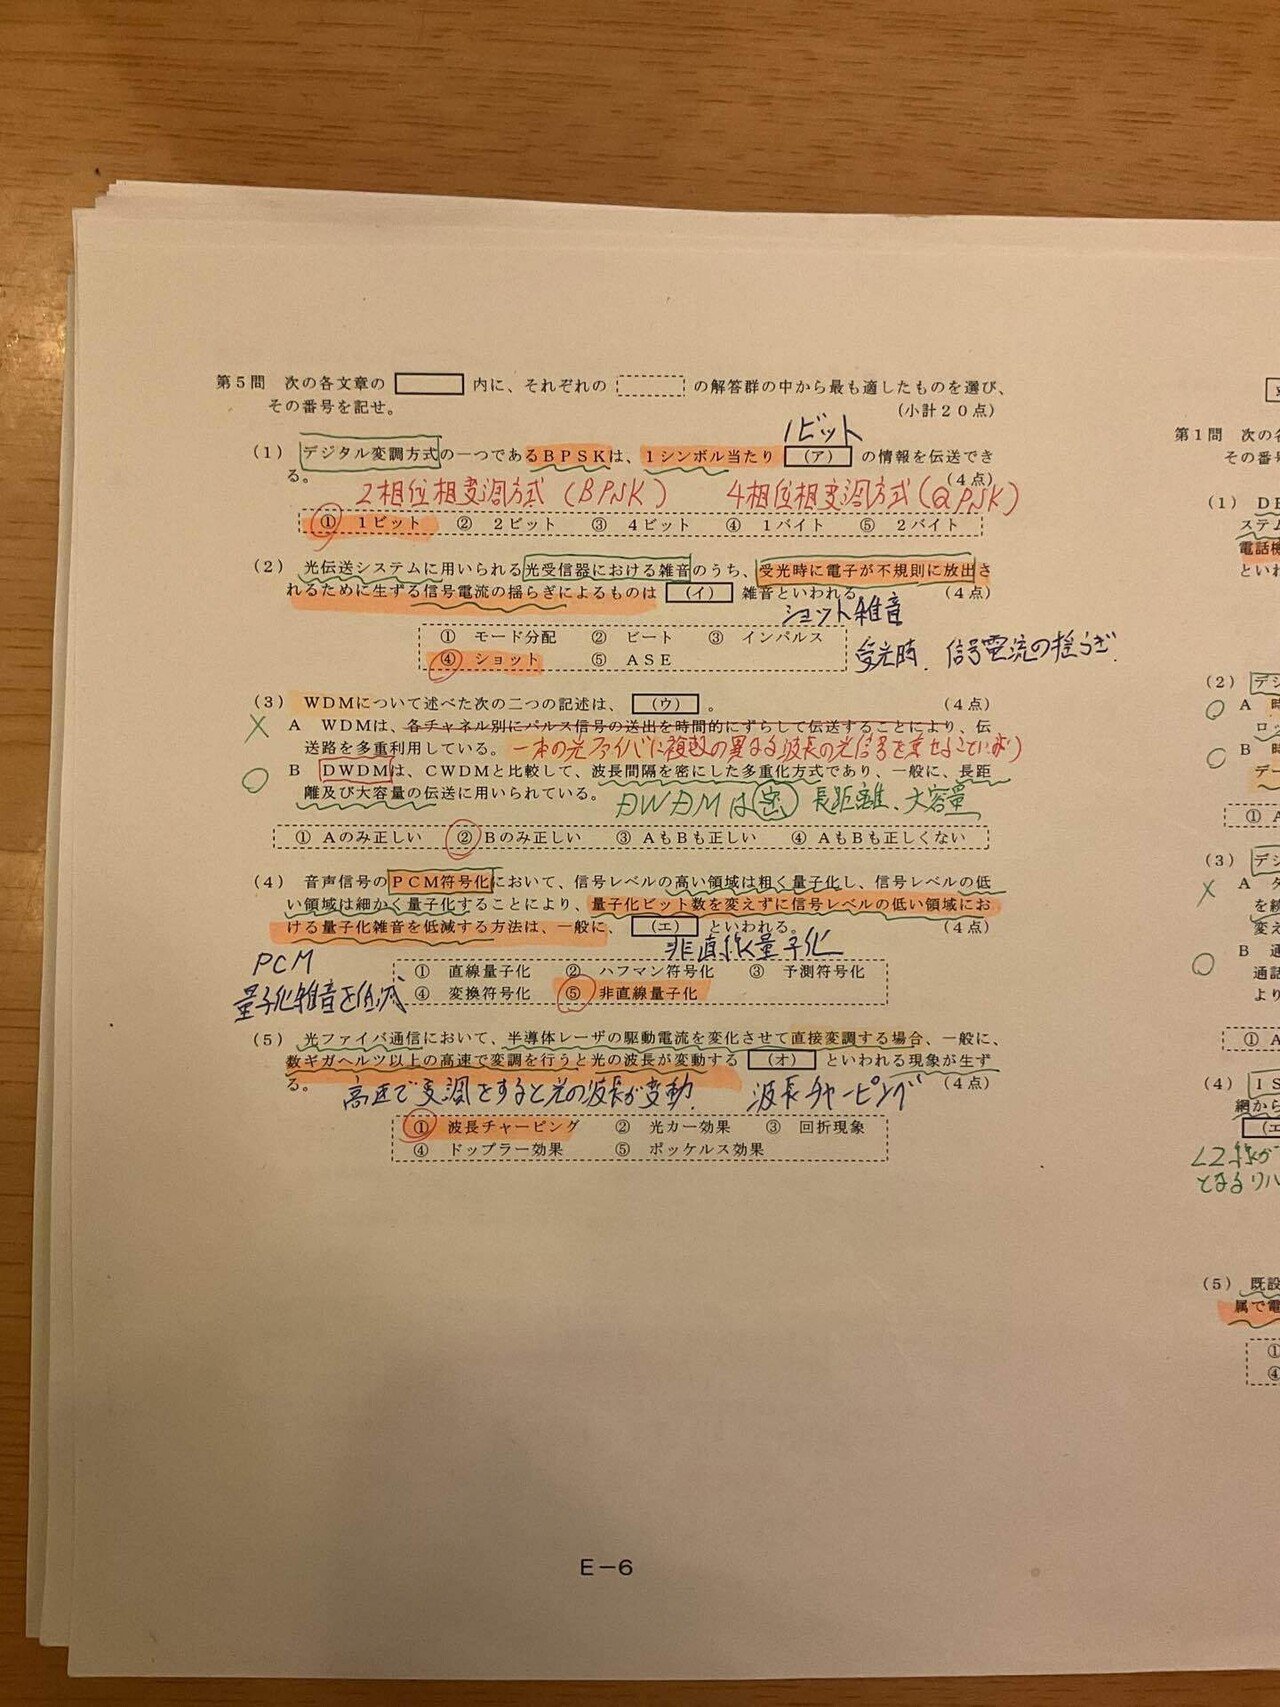 第5問 次の各文章の 内に、それぞれの の解答群の中から最も適したものを選び、
その番号を記せ。 (小計20点)
1ビット
(1) デジタル変調方式の一つであるBPSKは、1シンボル当たり (ア) の情報を伝送でき
る。 (4点)
2相位相変調方式(BPSK) 4相位相変調方式(QPSK)
① 1ビット ② 2ビット ③ 4ビット ④ 1バイト ⑤ 2バイト
(2) 光伝送システムに用いられる光受信器における雑音のうち、受光時に電子が不規則に放出さ
れるために生ずる信号電流の揺らぎによるものは (イ) 雑音といわれる。 (4点)
ショット雑音
① モード分配 ② ビート ③ インパルス
④ ショット ⑤ ASE
受光時、信号電流の揺らぎ.
(3) WDMについて述べた次の二つの記述は、 (ウ) 。 (4点)
× A WDMは、各チャネル別にパルス信号の送出を時間的にずらして伝送することにより、伝
送路を多重利用している。 一本の光ファイバに複数の異なる波長の光信号を乗せ
○ B DWDMは、CWDMと比較して、波長間隔を密にした多重化方式であり、一般に、長距
離及び大容量の伝送に用いられている。 DWDMは密 長距離、大容量
① Aのみ正しい ② Bのみ正しい ③ AもBも正しい ④ AもBも正しくない
(4) 音声信号のPCM符号化において、信号レベルの高い領域は粗く量子化し、信号レベルの低
い領域は細かく量子化することにより、量子化ビット数を変えずに信号レベルの低い領域にお
ける量子化雑音を低減する方法は、一般に、 (エ) といわれる。 (4点)
非直線量子化
PCM
量子化雑音を低減
① 直線量子化 ② ハフマン符号化 ③ 予測符号化
④ 変換符号化 ⑤ 非直線量子化
(5) 光ファイバ通信において、半導体レーザの駆動電流を変化させて直接変調する場合、一般に、
数ギガヘルツ以上の高速で変調を行うと光の波長が変動する (オ) といわれる現象が生ず
る。 (4点)
高速で変調をすると光の波長が変動. 波長チャーピング
① 波長チャーピング ② 光カー効果 ③ 回折現象
④ ドップラー効果 ⑤ ポッケルス効果
E-6
第1問 次の各
その番号
(1)
ステム
電話機
といれ
(2) デジ
○ A 時
ロッ
○ B 時
デー
① A
(3) デジ
× A
を続
変え
○ B 通
通話
より
① A
(4) IS
網から
(エ
となるリハ
(5) 既設
属で電
①
④